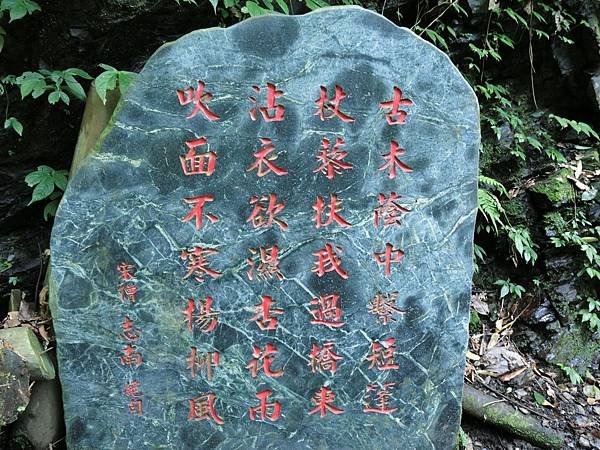 古木蔭中繫短篷
杖藜扶我過橋東
沾衣欲濕杏花雨
吹面不寒楊柳風
宋僧 志南